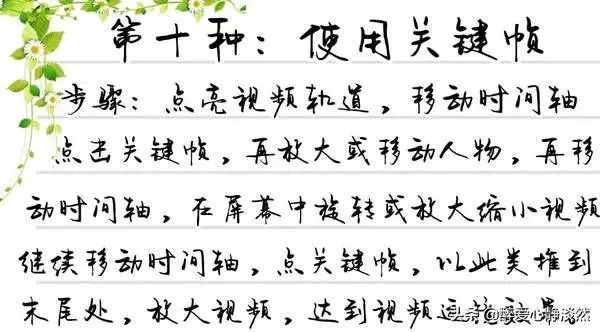 第十种：使用关键帧
步骤：点亮视频轨道，移动时间轴
点击关键帧，再放大或移动人物，再移
动时间轴，在屏幕中旋转或放大缩小视频
继续移动时间轴，点关键帧，以此类推到
末尾处，放大视频，达到视频
头条@酸爱心静淡然